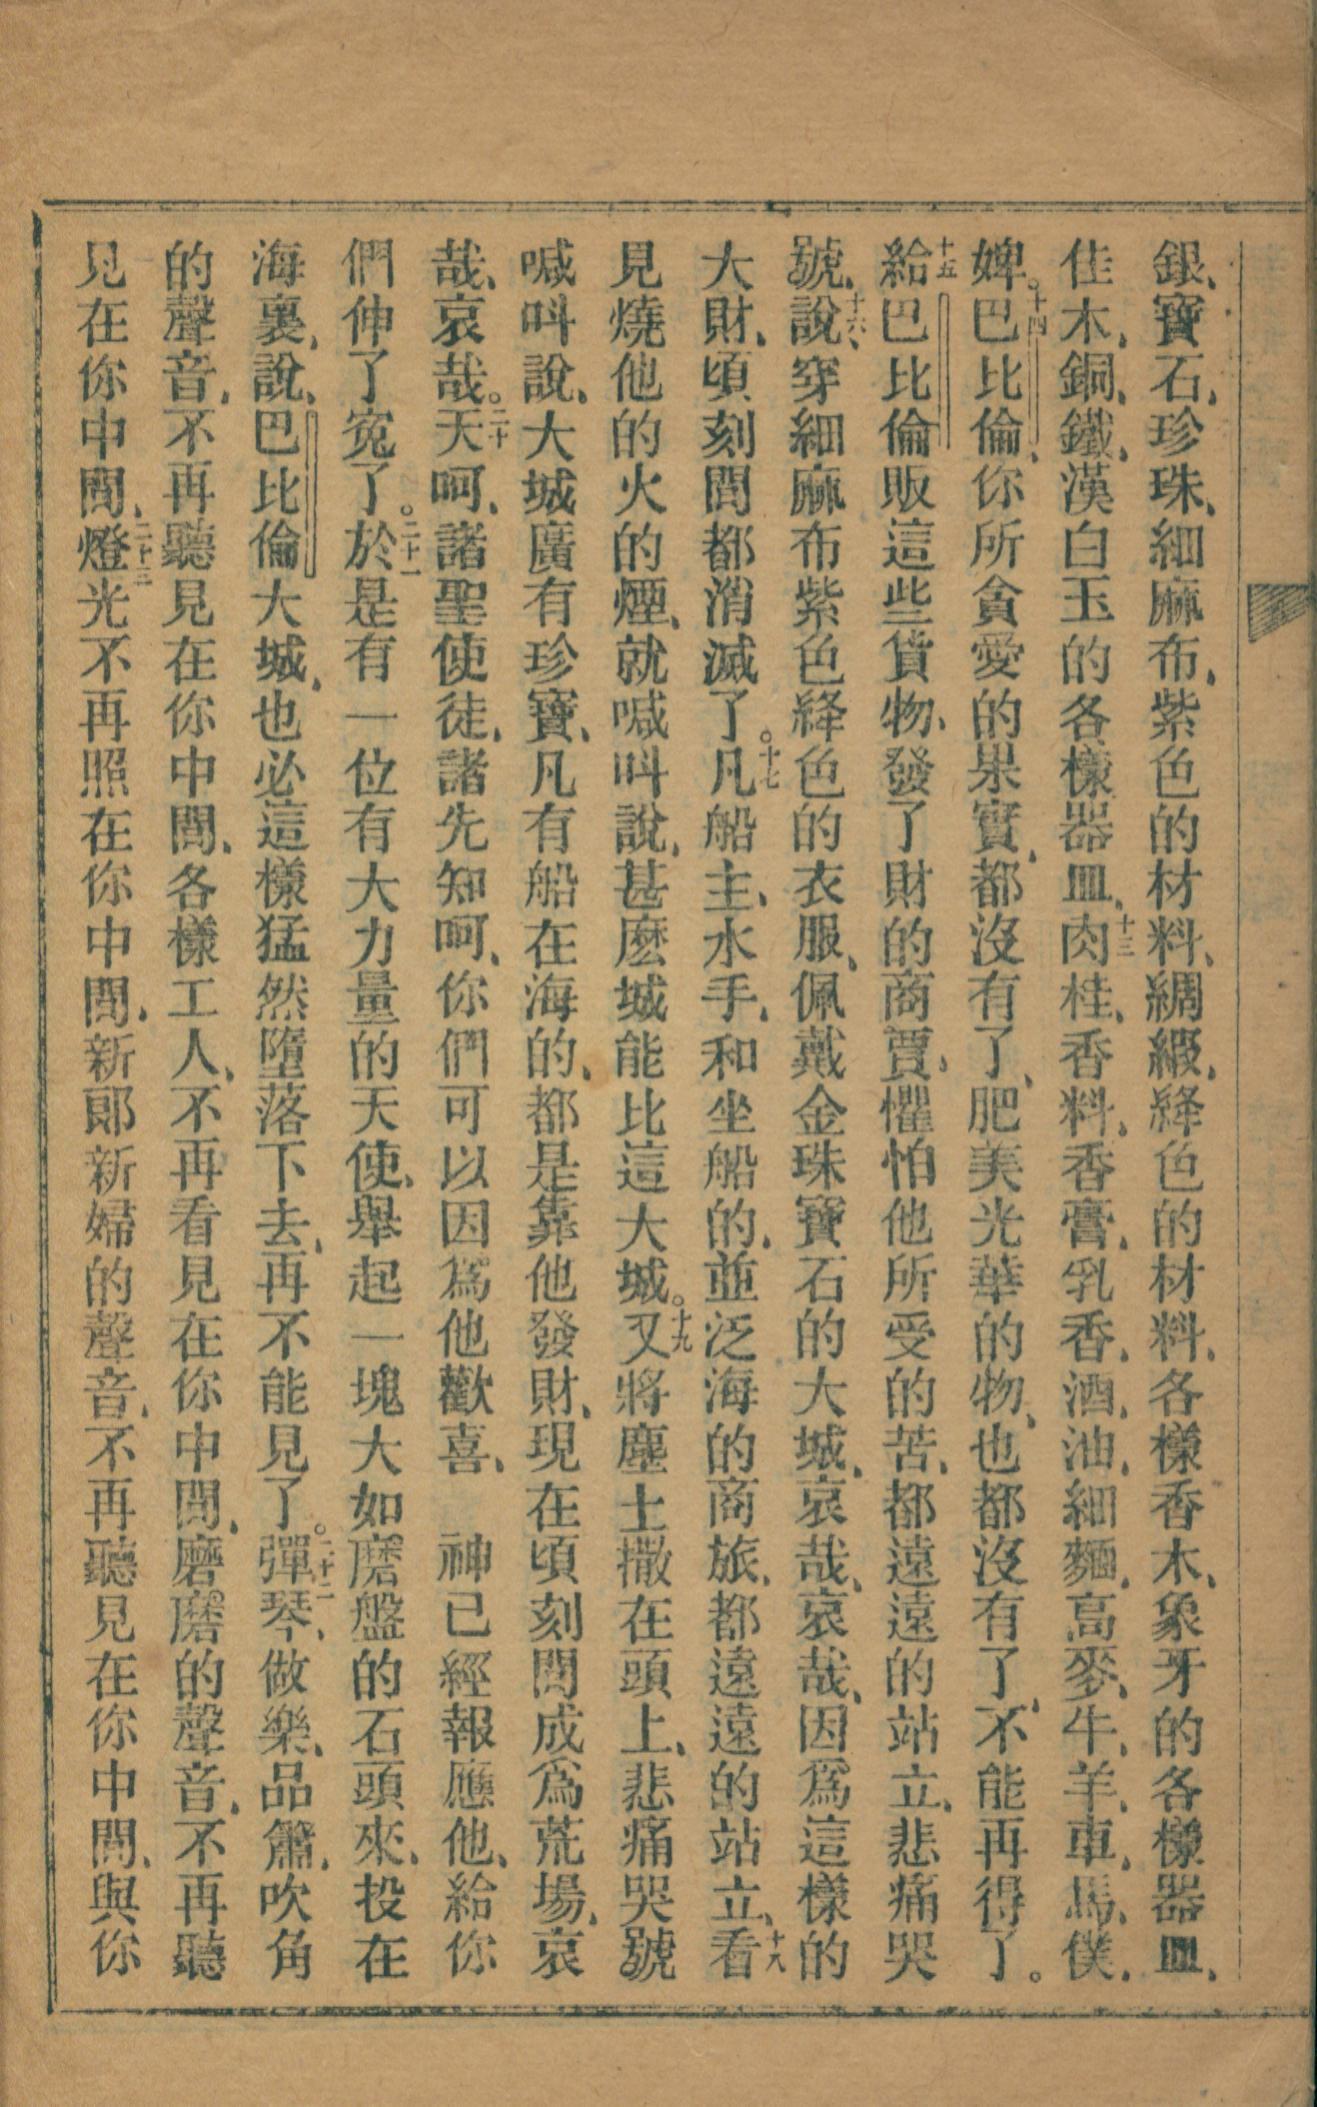 銀、寶石、珍珠、細麻布、紫色的材料、綢緞、絳色的材料、各樣香木、象牙的各樣器皿、
佳木、銅、鐵、漢白玉的各樣器皿、十三肉桂、香料、香膏、乳香、酒、油、細麵、高麥、牛、羊、車、馬、僕、
婢。十四巴比倫、你所貪愛的果實、都沒有了、肥美光華的物、也都沒有了、不能再得了。
十五給巴比倫販這些貨物、發了財的商賈、懼怕他所受的苦、都遠遠的站立、悲痛哭
號、十六說、穿細麻布紫色絳色的衣服、佩戴金珠寶石的大城、哀哉、哀哉、因爲這樣的
大財、頃刻間都消滅了。十七凡船主、水手、和坐船的、並泛海的商旅、都遠遠的站立、十八看
見燒他的火的煙、就喊叫說、甚麽城能比這大城。十九又將塵土撒在頭上、悲痛哭號
喊叫說、大城廣有珍寶、凡有船在海的、都是靠他發財、現在頃刻間成爲荒場、哀
哉、哀哉。二十天呵、諸聖使徒、諸先知呵、你們可以因爲他歡喜、　神已經報應他、給你
們伸了寃了。二十一於是有一位有大力量的天使、舉起一塊大如磨盤的石頭來、投在
海裏、說、巴比倫大城、也必這樣猛然墮落下去、再不能見了。二十二彈琴、做樂、品簫、吹角
的聲音、不再聽見在你中間、各樣工人、不再看見在你中間、磨磨的聲音、不再聽
見在你中間、二十三燈光不再照在你中間、新郞新婦的聲音、不再聽見在你中間、與你